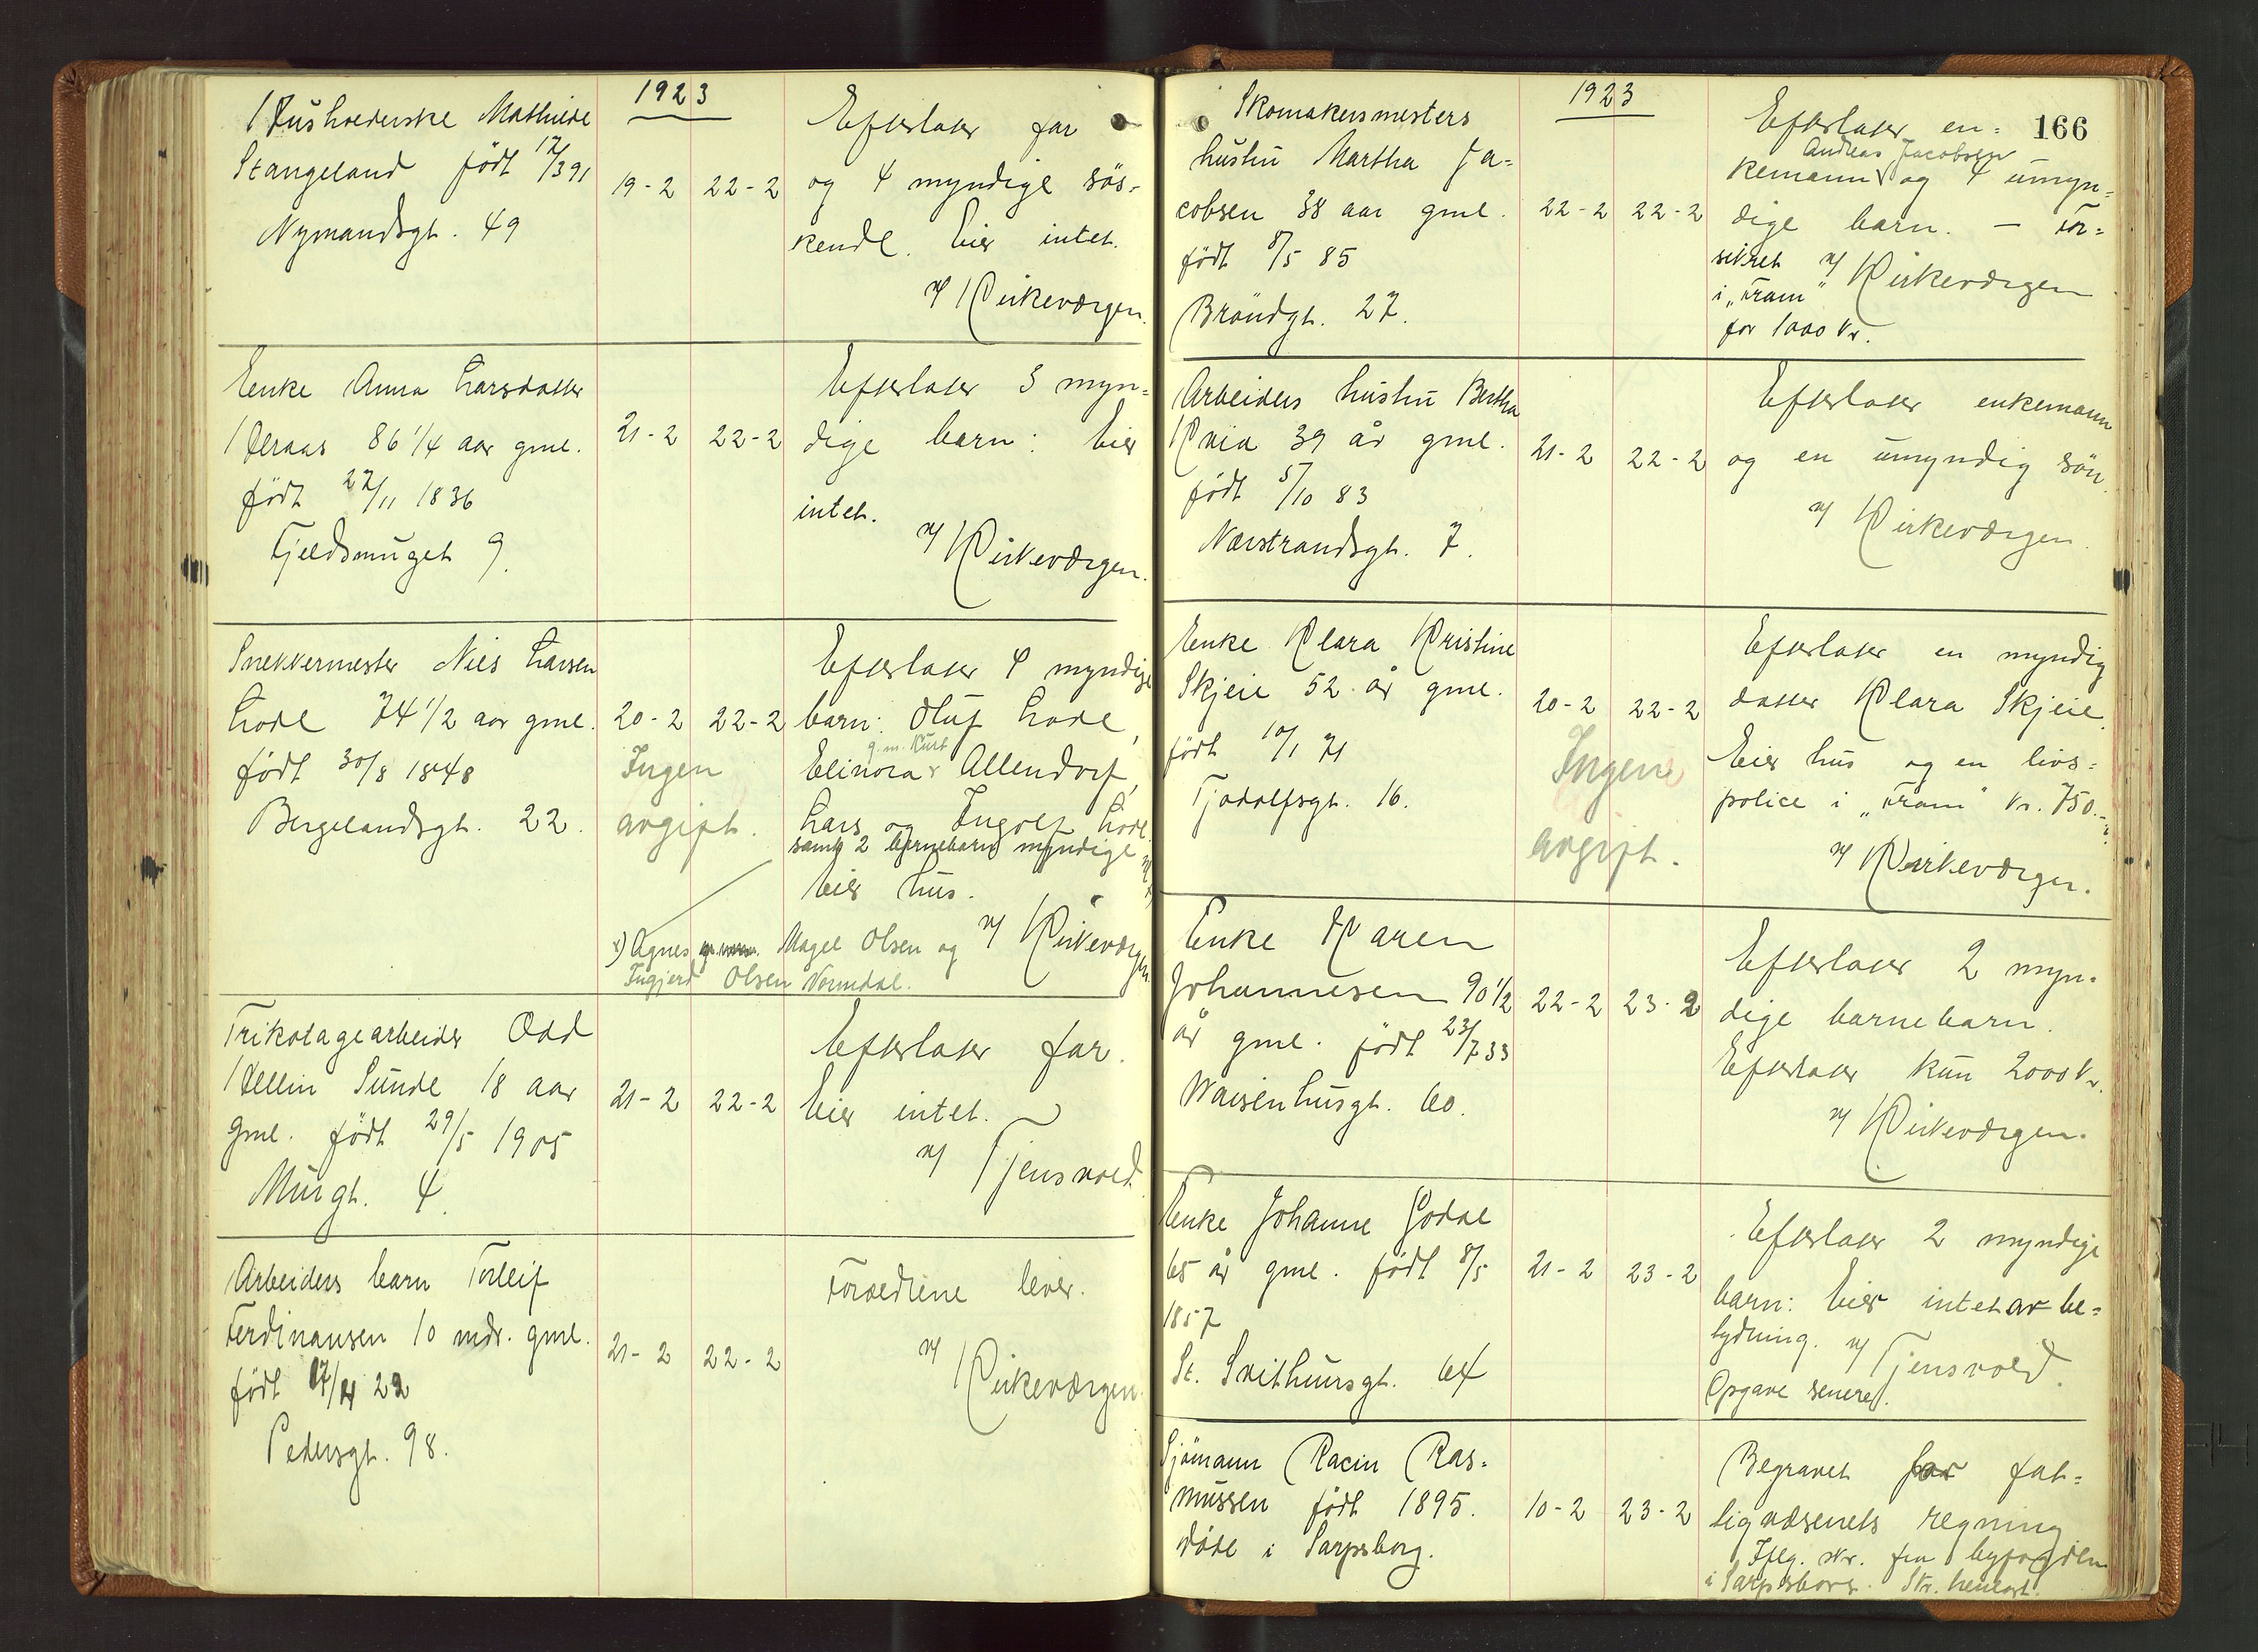 1923
Husholderske Mathilde
Stangeland født 17/3 91
Nymandsgt. 49
19-2 22-2
Efterlater far
og 4 myndige søs-
kende. Eier intet.
v/ Kirkeværgen.
Enke Anna Larsdatter
Heraas 86 1/4 aar gml.
født 27/11 1836
Fjeldsmuget 9.
21-2 22-2
Efterlater 3 myn=
dige barn: Eier
intet.
v/ Kirkeværgen.
Snekkermester Nils Larsen
Lode 74 1/2 aar gml.
født 30/8 1848
Bergelandsgt. 22.
20-2 22-2
Ingen
avgift.
Efterlater 4 myndige
barn: Oluf Lode,
g.m. Kurt
Elinora Allendorf,
Lars og Ingolf Lode
samt 2 barnebarn myndige
Eier hus.
v/ Kirkeværgen.
x) Agnes Magel Olsen og
Ingjerd Olsen Normdal.
Trikotagearbeider Odd
Hellin Sunde 18 aar
gml. født 29/5 1905
Murgt. 4.
21-2 22-2
Efterlater far.
Eier intet.
v/ Tjensvold
Arbeiders barn Torleif
Ferdinansen 10 mdr. gml.
født 17/4 22
Pedersgt. 98.
21-2 22-2
Forældrene lever.
v/ Kirkeværgen.
1923
166
Skomakermesters
hustru Martha Ja=
cobsen 38 aar gml.
født 8/5 85
Brøndgt. 27.
22-2 22-2
Efterlater en=
Andreas Jacobsen
kemann og 4 umyn=
dige barn. — For=
sikret v/ Kirkeværgen
i „Fram"
for 1000 kr.
Arbeiders hustru Bertha
Kvia 39 år gml.
født 5/10 83
Nærstrandsgt. 7.
21-2 22-2
Efterlater enkemann
og en umyndig søn.
v/ Kirkeværgen.
Enke Klara Kristine
Skjeie 52 år gml.
født 10/1 71
Tjodolfsgt. 16.
20-2 22-2
Ingen
avgift.
Efterlater en myndig
datter Klara Skjeie.
Eier hus og en livs=
police i „Fram" kr. 750.-
v/ Kirkeværgen.
Enke Karen
Johannesen 90 1/2
år gml. født 23/7 33
Waisenhusgt. 60.
22-2 23-2
Efterlater 2 myn=
dige barnebarn.
Efterlater kun 2000 kr.
v/ Kirkeværgen.
Enke Johanne Godal
65 år gml. født 8/5
1857
St. Svithunsgt. 64
21-2 23-2
Efterlater 2 myndige
barn: Eier intet av be=
tydning. v/ Tjensvold.
Opgave senere.
Sjømann Racin Ras=
mussen født 1895.
døde i Sarpsborg.
10-2 23-2
Begravet for fat=
tigvæsenets regning
Iflg. skr. fra byfogden
i Sarpsborg. Skr. henlagt.